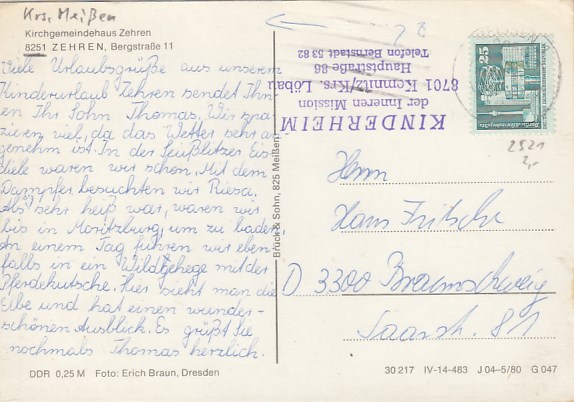 Krs. Meißen
Kirchgemeindehaus Zehren
8251 ZEHREN, Bergstraße 11
Viele Urlaubsgrüße aus unserem
Kinderurlaub Zehren sendet Ihn-
en Ihr Sohn Thomas. Wir spa-
zieren viel, da das Wetter sehr a
genehm ist. In der Seußlitzer Eis
diele waren wir schon. Mit dem
Dampfer besuchten wir Riesa.
Als sehr heiß war, waren wir
bis in Moritzburg, um zu baden.
An einem Tag fuhren wir eben-
falls in ein Wildgehege mit der
Pferdekutsche. Hier sieht man die
Elbe und hat einen wunder-
schönen Ausblick. Es grüßt Sie
nochmals Thomas herzlich.
DDR 0,25 M Foto: Erich Braun, Dresden
Brück & Sohn, 825 Meißen
KINDERHEIM
der Inneren Mission
8701 Kemnitz/Krs. Löbau
Hauptstraße 86
Telefon Bernstadt 53 82
25
DDR
2521
2,-
Herrn
Hans Fritsche
D 3300 Braunschweig
Saarstr. 81
30 217 IV-14-483 J 04-5/80 G 047